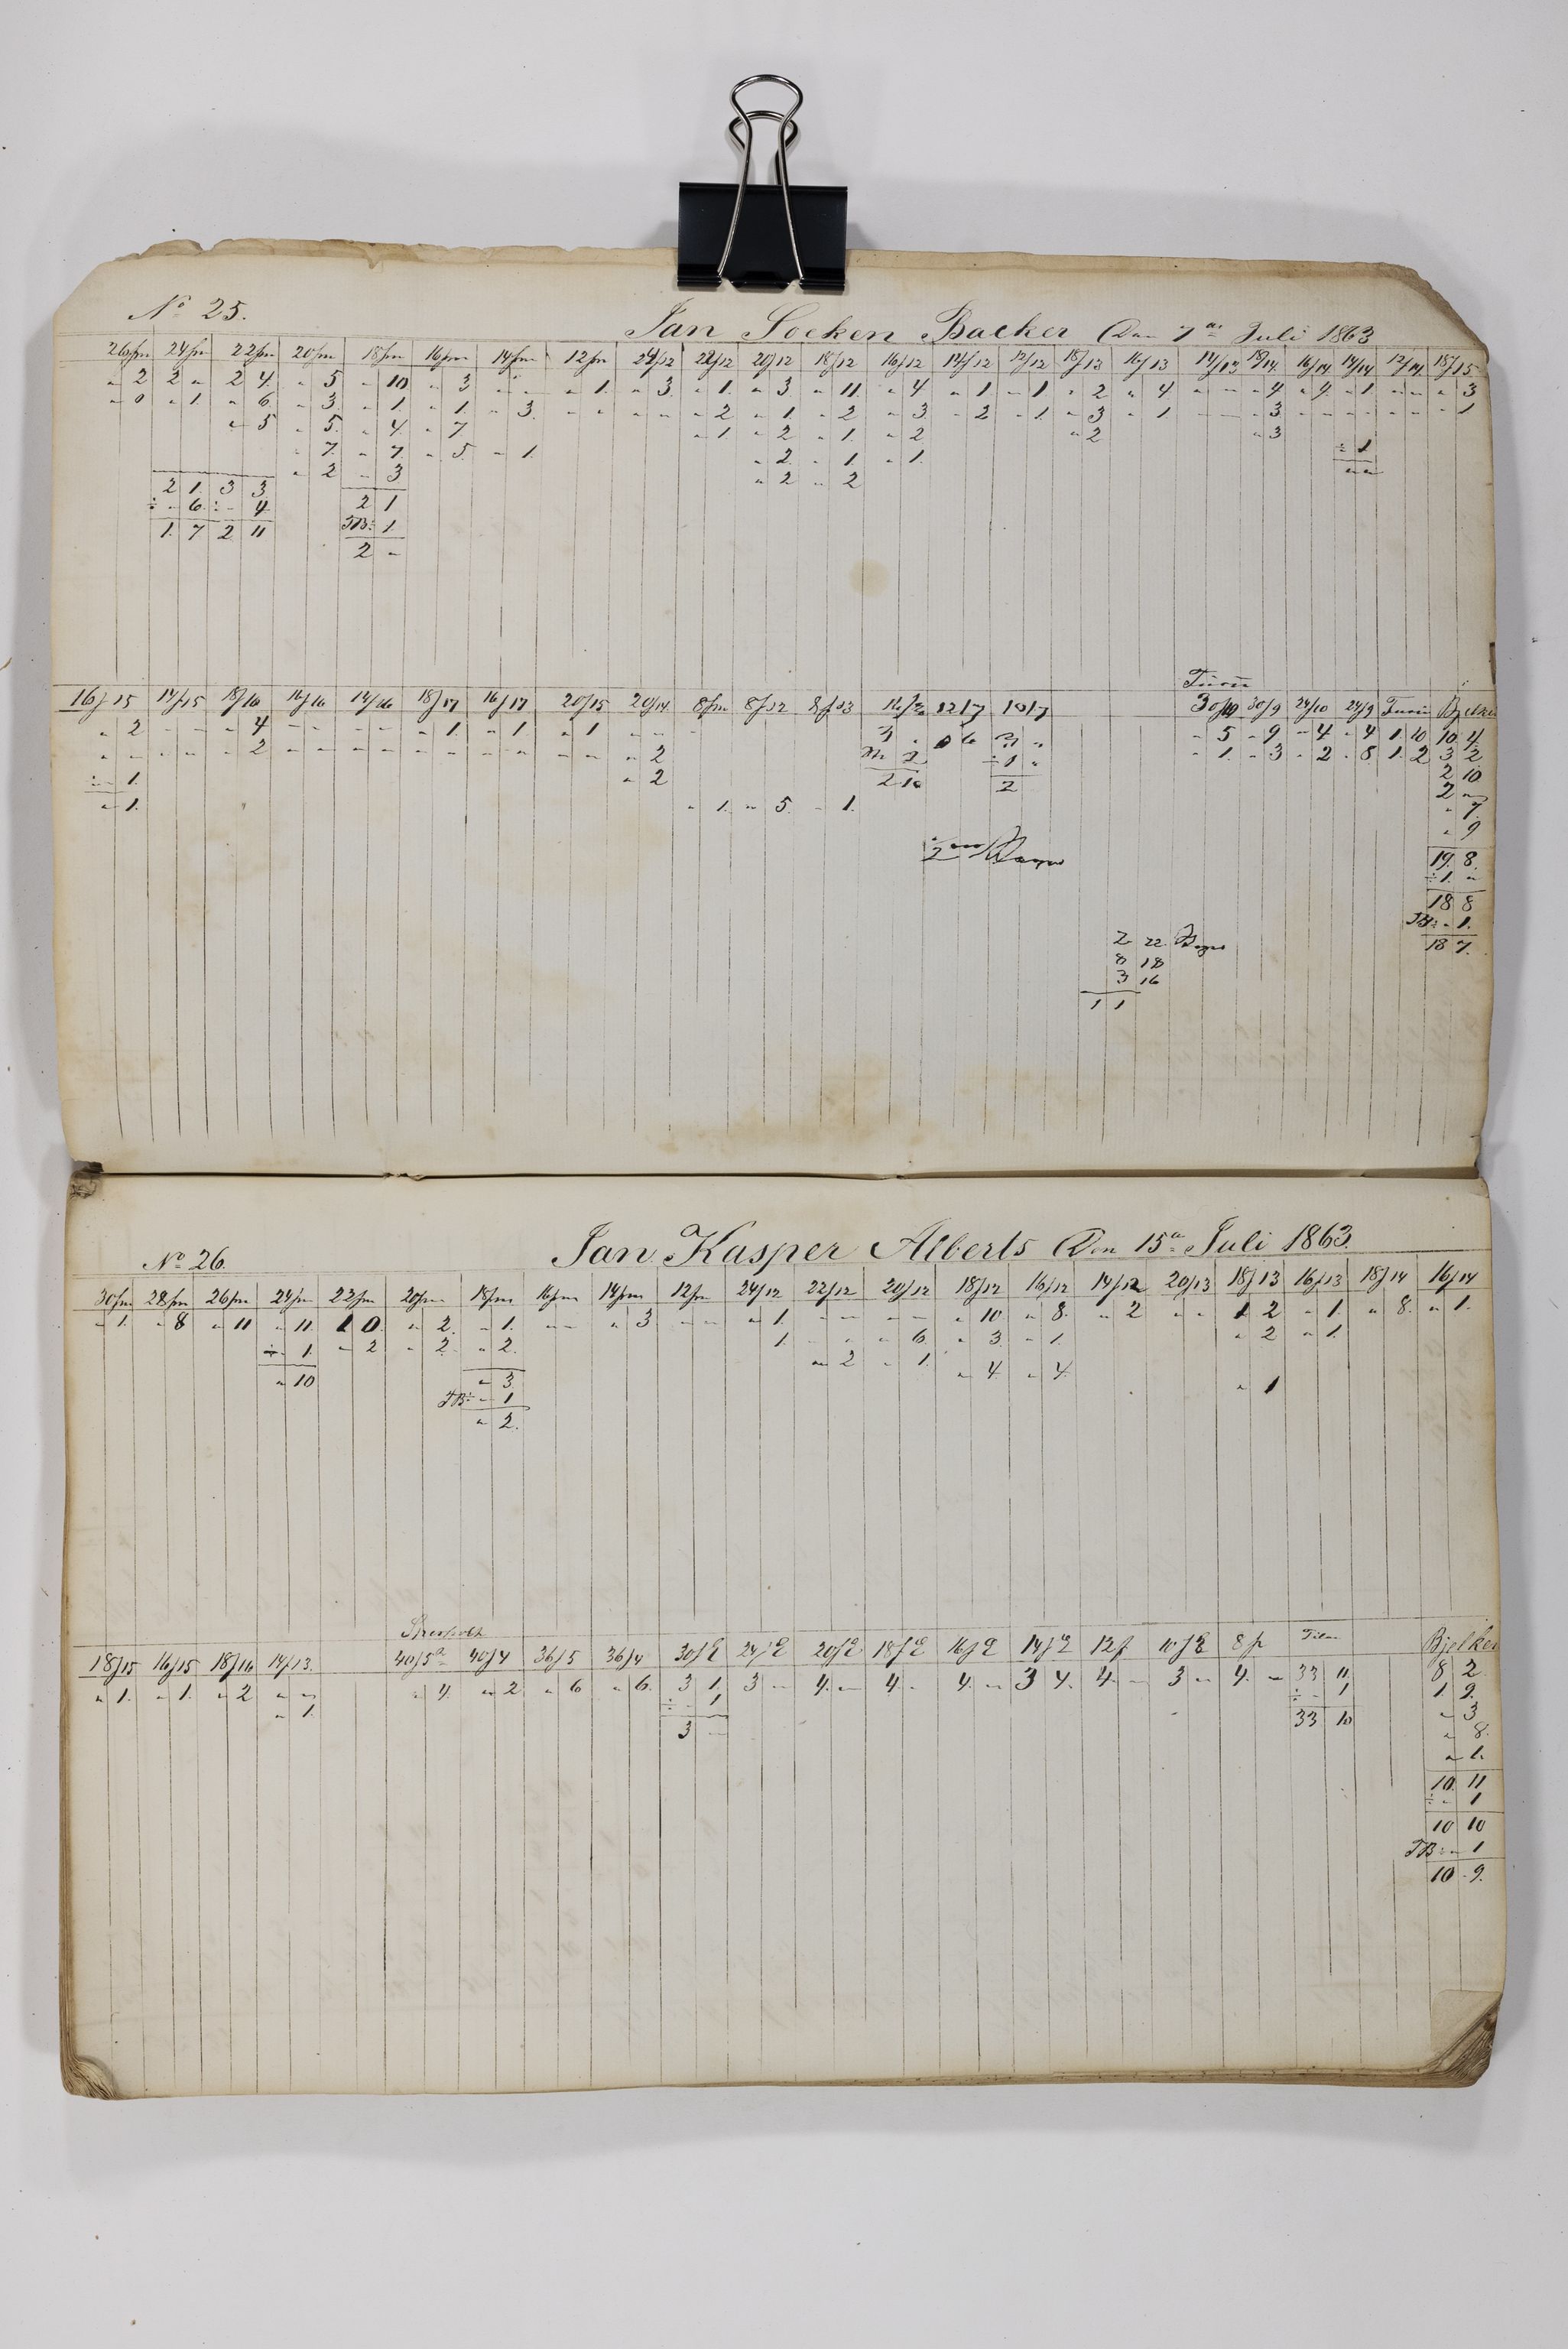 No 25. Jan Socken Backer Den 7 Juli 1863
26fm 24fm 22fm 20fm 18fm 16fm 14fm 12fm 24/12 22/12 20/12 18/12 16/12 14/12 12/12 18/13 16/13 14/13 18/14 16/14 14/14 12/14 18/15
" 2 2 " 2 4 " 5 " 10 " 3 " " " 1 " 3 " 1 " 3 " 11 " 4 " 1 " 1 " 2 " 4 " " " 4 " 4 " 1 " " " 3
" 0 " 1 " 6 " 3 " 1 " 1 " 3 " " " " " 2 " 1 " 2 " 3 " 2 " 1 " 3 " 1 " " " 3 " " " " " " " 1
" 5 " 5 " 4 " 7 " 1 " 2 " 1 " 2 " 2 " 3
" 7 " 7 " 5 " 1 " 2 " 1 " 1 ÷ 1
" 2 " 3 " 2 " 2 " "
2 1 3 3 2 1
÷ " 6 ÷ " 4 TB÷ 1
1 7 2 11 2 "
16/15 14/15 18/16 16/16 14/16 18/17 16/17 20/15 20/14 8fm 8/12 8/13 1217 1017 30/10 30/9 24/10 24/9 Bjelker
" 2 " " " 4 " " " " " 1 " 1 " 1 " " 6 " 5 " 9 " 4 " 4 1 10 10 4
" " " " " 2 " " " " " " " " " " " 2 ÷ 1 " " 1 " 3 " 2 " 8 1 2 3 2
÷ " 1 " 2 2 10 2 2 10
" 1 2 "
" 1 " 5 " 1 " 7
" 9
19 8
÷ 1 "
18 8
TB÷ " 1
18 7
2 22
8 18
3 16
1 1
No 26. Jan Kasper Alberts Den 15 Juli 1863
30fm 28fm 26fm 24fm 22fm 20fm 18fm 16fm 14fm 12fm 24/12 22/12 20/12 18/12 16/12 14/12 20/13 18/13 16/13 18/14 16/14
" 1 " 8 " 11 " 11 1 0 " 2 " 1 " " " 3 " " " 1 " " " " " 10 " 8 " 2 " " 1 2 " 1 " 8 " 1
÷ 1 " 2 " 2 " 2 1 " " " 6 " 3 " 1 " 2 " 1
" 10 " 3 " 2 " 1 " 4 " 4 " 1
TB÷ " 1
" 2
18/15 16/15 18/16 14/13 40/5 40/4 36/5 36/4 30/ 24/ 20/ 18/ 16/ 14/ 12/ 10/ 8/ Bjelker
" 1 " 1 " 2 " " " 4 " 2 " 6 " 6 3 1 3 " 4 " 4 " 4 " 3 4 4 " 3 " 4 " 33 11 8 2
" 1 ÷ " 1 ÷ " 1 1 9
3 " 33 10 " 3
" 8
" 1
10 11
÷ " 1
10 10
TB÷ " 1
10 9